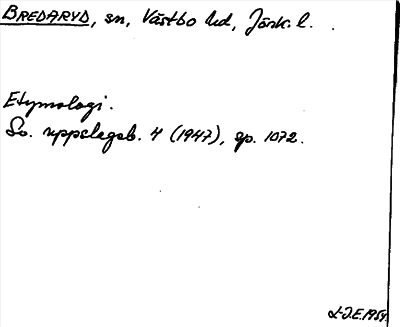 BREDARYD, sn, Västbo hd, Jönk. l.
Etymologi.
Sv. uppslagsb. 4 (1947), sp. 1072.
L-J.E. 1959.